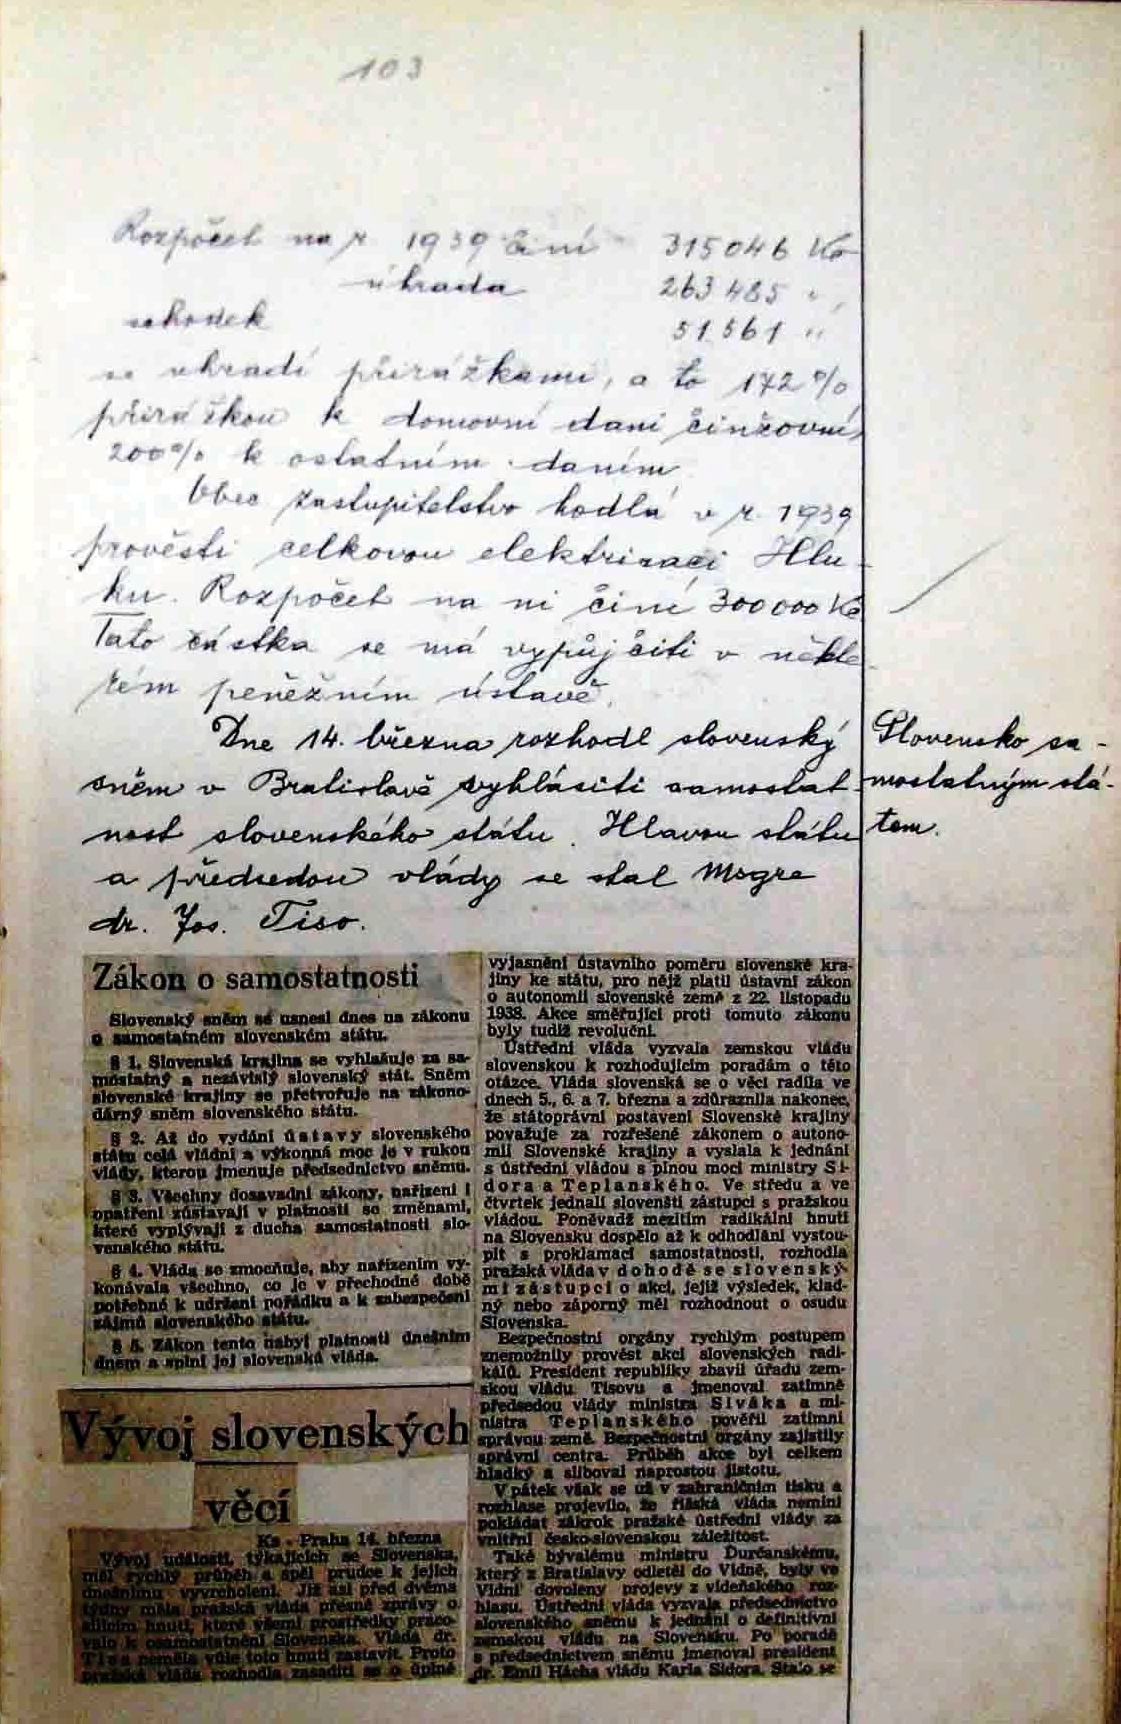 103
Rozpočet na r. 1939 činí 315046 Kč
úhrada 263 485 "
schodek 51.561 "
se uhradí přirážkami, a to 172%
přirážkou k domovní dani činžovní,
200% k ostatním daním.
Obec zastupitelstvo hodlá v r. 1939
provésti celkovou elektrisaci Hlu-
ku. Rozpočet na ni činí 300000 Kč
Tato částka se má vypůjčiti v někte-
rém peněžním ústavě.
Dne 14. března rozhodl slovenský
sněm v Bratislavě vyhlásiti samostat-
nost slovenského státu. Hlavou státu
a předsedou vlády se stal Msgre
dr. Jos. Tiso.
Slovensko sa-
mostatným stá-
tem.
Zákon o samostatnosti
Slovenský sněm se usnesl dnes na zákonu
o samostatném slovenském státu.
§ 1. Slovenská krajina se vyhlašuje za sa-
mostatný a nezávislý slovenský stát. Sněm
slovenské krajiny se přetvořuje na zákono-
dárný sněm slovenského státu.
§ 2. Až do vydání ústavy slovenského
státu celá vládní a výkonná moc je v rukou
vlády, kterou jmenuje předsednictvo sněmu.
§ 3. Všechny dosavadní zákony, nařízení i
opatření zůstavají v platnosti se změnami,
které vyplývají z ducha samostatnosti slo-
venského státu.
§ 4. Vláda se zmocňuje, aby nařízením vy-
konávala všechno, co je v přechodné době
potřebné k udržení pořádku a k zabezpečení
zájmů slovenského státu.
§ 5. Zákon tento nabyl platnosti dnešním
dnem a splní jej slovenská vláda.
Vývoj slovenských
věcí
Ks - Praha 14. března
Vývoj událostí, týkajících se Slovenska,
měl rychlý průběh a spěl prudce k jejich
dnešnímu vyvrcholení. Již asi před dvěma
týdny měla pražská vláda přesné zprávy o
sílícím hnutí, které všemi prostředky praco-
valo k osamostatnění Slovenska. Vláda dr.
Tisa neměla vůle toto hnutí zastavit. Proto
pražská vláda rozhodla zasaditi se o úplné
vyjasnění ústavního poměru slovenské kra-
jiny ke státu, pro nějž platil ústavní zákon
o autonomii slovenské země z 22. listopadu
1938. Akce směřující proti tomuto zákonu
byly tudíž revoluční.
Ústřední vláda vyzvala zemskou vládu
slovenskou k rozhodujícím poradám o této
otázce. Vláda slovenská se o věci radila ve
dnech 5., 6. a 7. března a zdůraznila nakonec,
že státoprávní postavení Slovenské krajiny
považuje za rozřešené zákonem o autono-
mii Slovenské krajiny a vyslala k jednání
s ústřední vládou s plnou mocí ministry Si-
dora a Teplanského. Ve středu a ve
čtvrtek jednali slovenští zástupci s pražskou
vládou. Poněvadž mezitím radikální hnutí
na Slovensku dospělo až k odhodlání vystou-
pit s proklamací samostatnosti, rozhodla
pražská vláda v dohodě se slovenský-
mi zástupci o akci, jejíž výsledek, klad-
ný nebo záporný měl rozhodnout o osudu
Slovenska.
Bezpečnostní orgány rychlým postupem
znemožnily provést akci slovenských radi-
kálů. President republiky zbavil úřadu zem-
skou vládu Tisovu a jmenoval zatímně
předsedou vlády ministra Siváka a mi-
nistra Teplanského pověřil zatímní
správou země. Bezpečnostní orgány zajistily
správní centra. Průběh akce byl celkem
hladký a sliboval naprostou jistotu.
V pátek však se už v zahraničním tisku a
rozhlase projevilo, že říšská vláda nemíní
pokládat zákrok pražské ústřední vlády za
vnitřní česko-slovenskou záležitost.
Také bývalému ministru Ďurčanskému,
který z Bratislavy odletěl do Vídně, byly ve
Vídni dovoleny projevy z vídeňského roz-
hlasu. Ústřední vláda vyzvala předsednictvo
slovenského sněmu k jednání o definitivní
zemskou vládu na Slovensku. Po poradě
s předsednictvem sněmu jmenoval president
dr. Emil Hácha vládu Karla Sidora. Stalo se